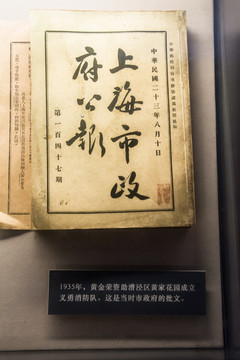 中華民國二十三年八月十日
上海市政
府公報
第一百四十七期
1935年，黄金荣资助漕泾区黄家花园成立
义勇消防队。这是当时市政府的批文。